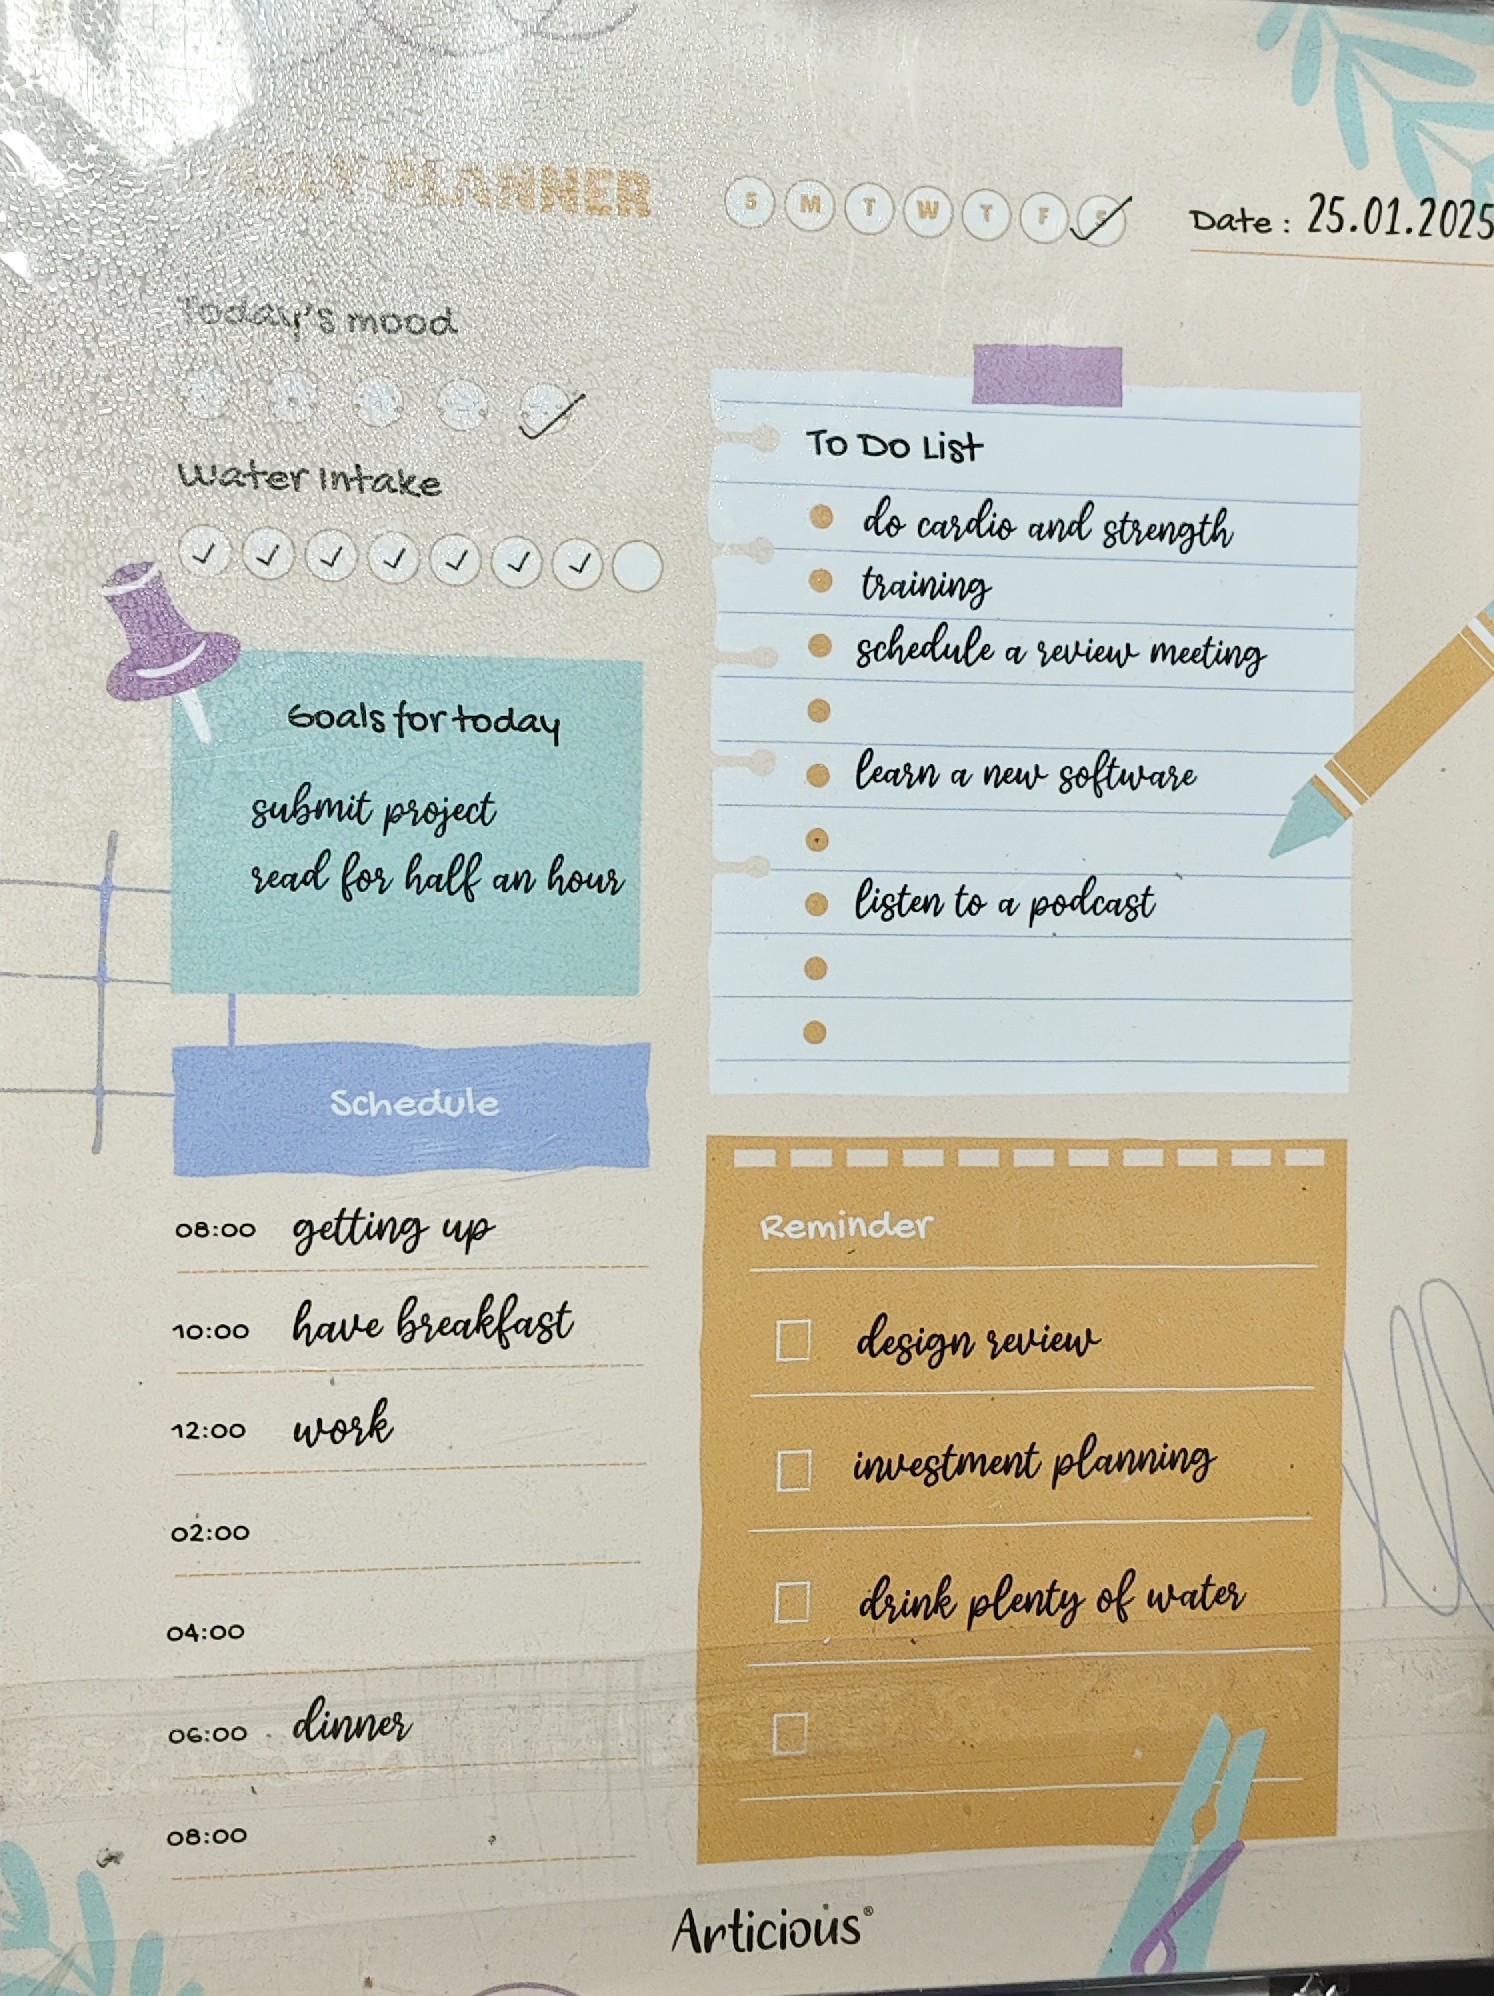 PLANNER
S M T W T F S
Date : 25.01.2025
Today's mood
Water Intake
Goals for today
submit project
read for half an hour
To Do List
do cardio and strength
training
schedule a review meeting
learn a new software
listen to a podcast
Schedule
08:00 getting up
10:00 have breakfast
12:00 work
02:00
04:00
06:00 dinner
08:00
Reminder
design review
investment planning
drink plenty of water
Articious®